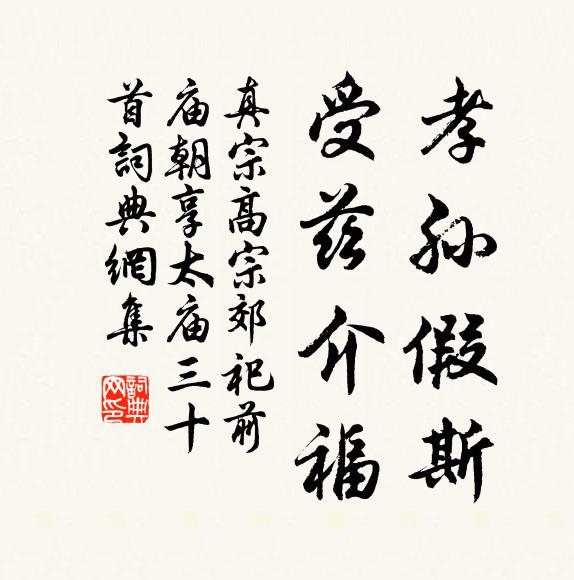 孝孙假斯
受兹介福
真宗高宗郊祀前
庙朝享太庙三十
首詞典網集
詞典
网印